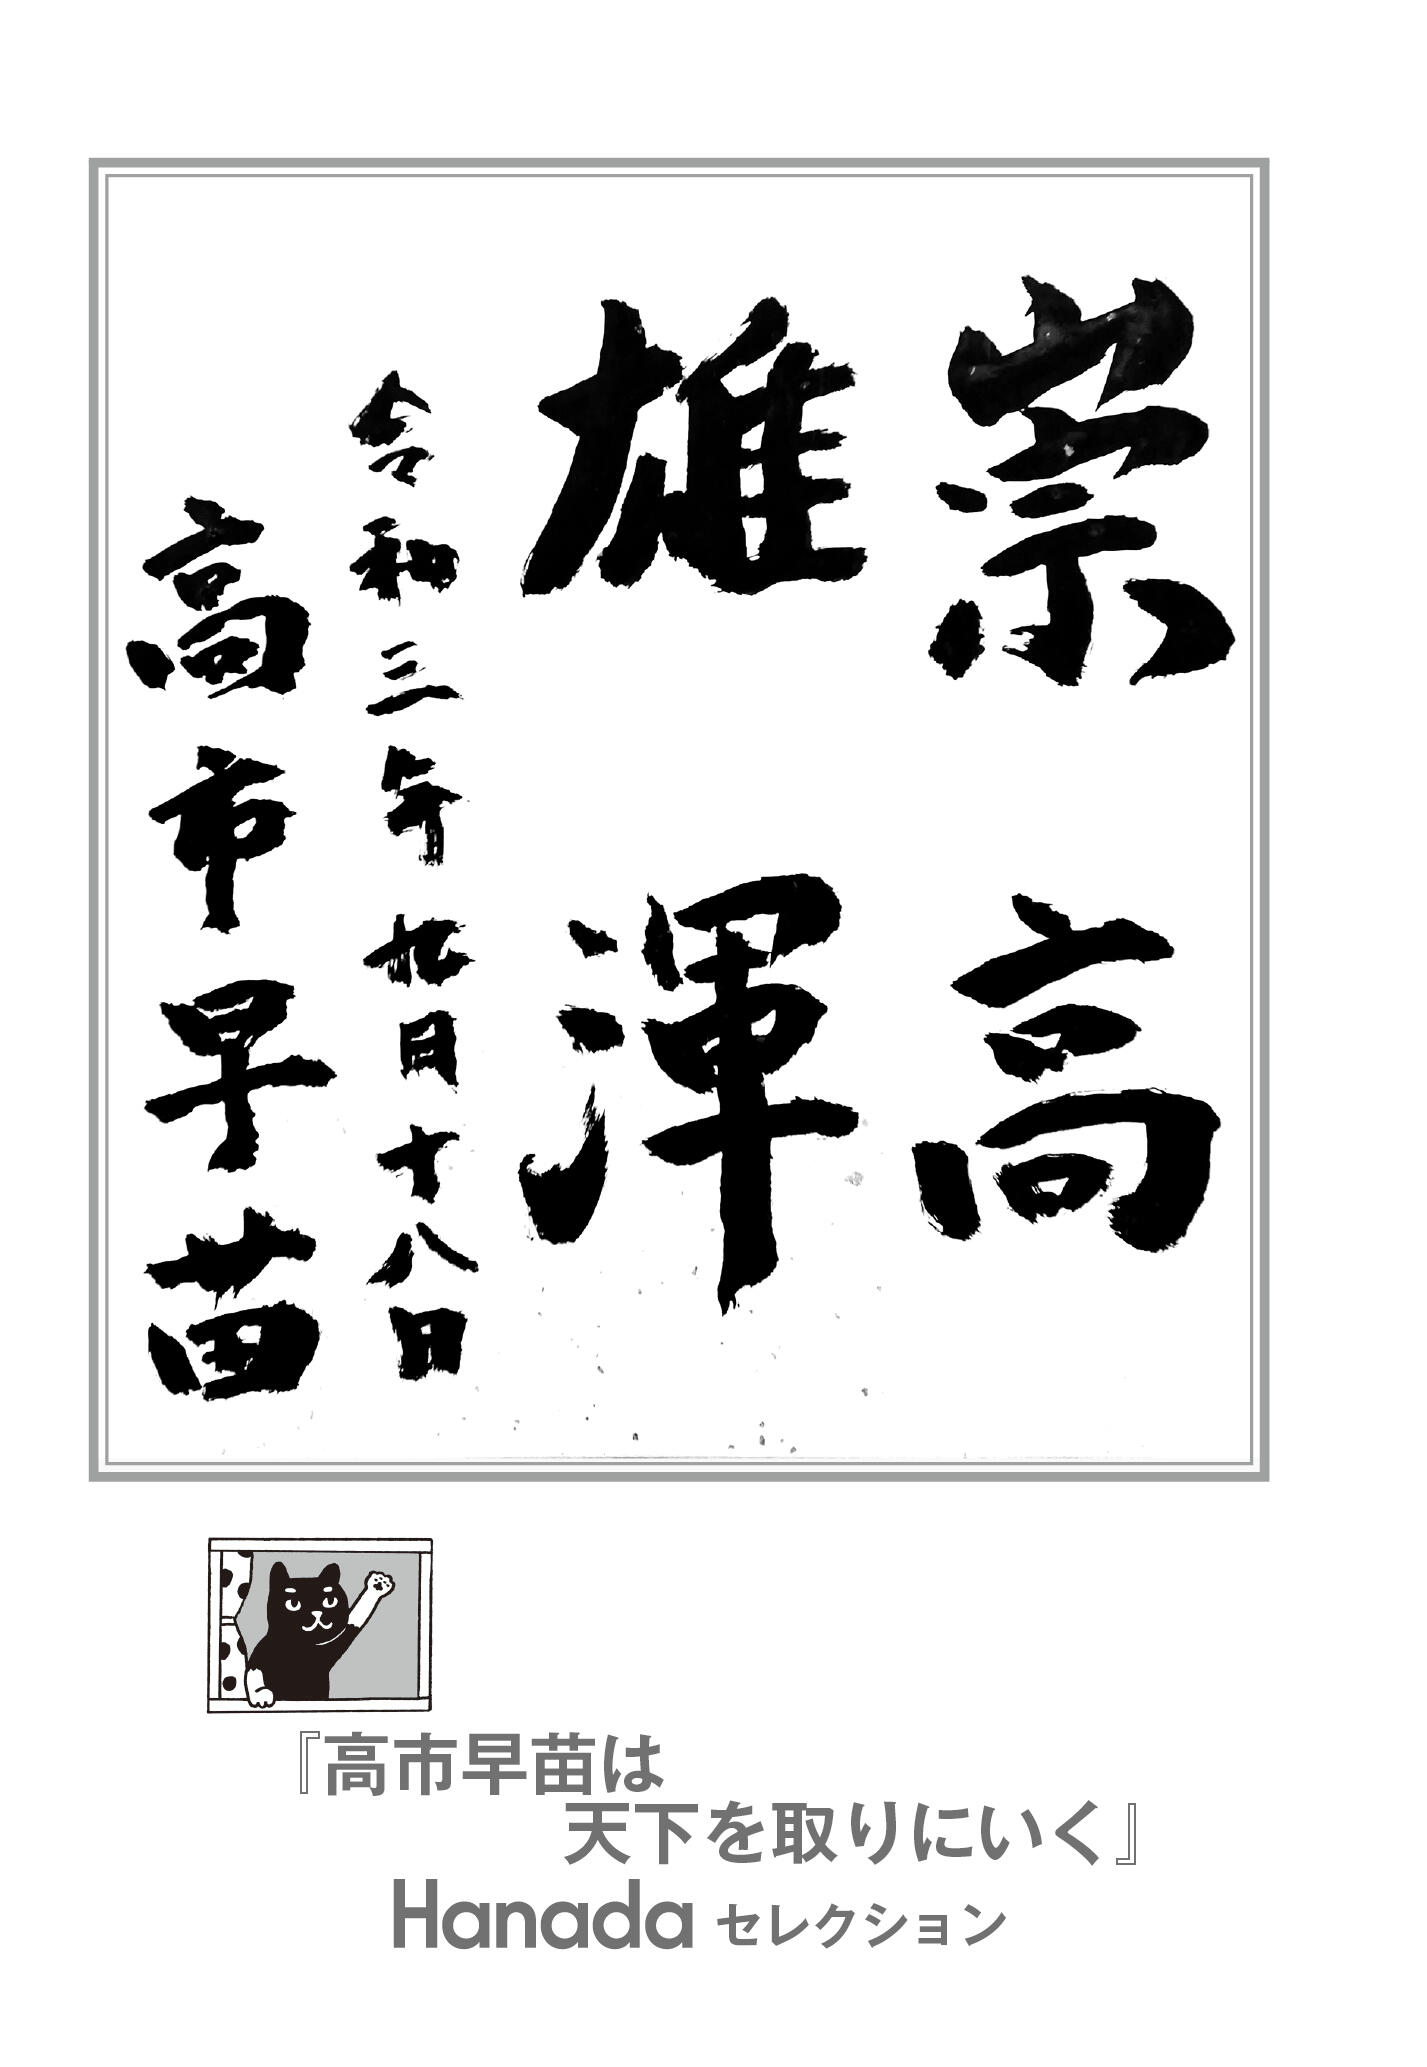 崇高
雄渾
令和三年九月十八日
高市早苗
『高市早苗は
天下を取りにいく』
Hanadaセレクション